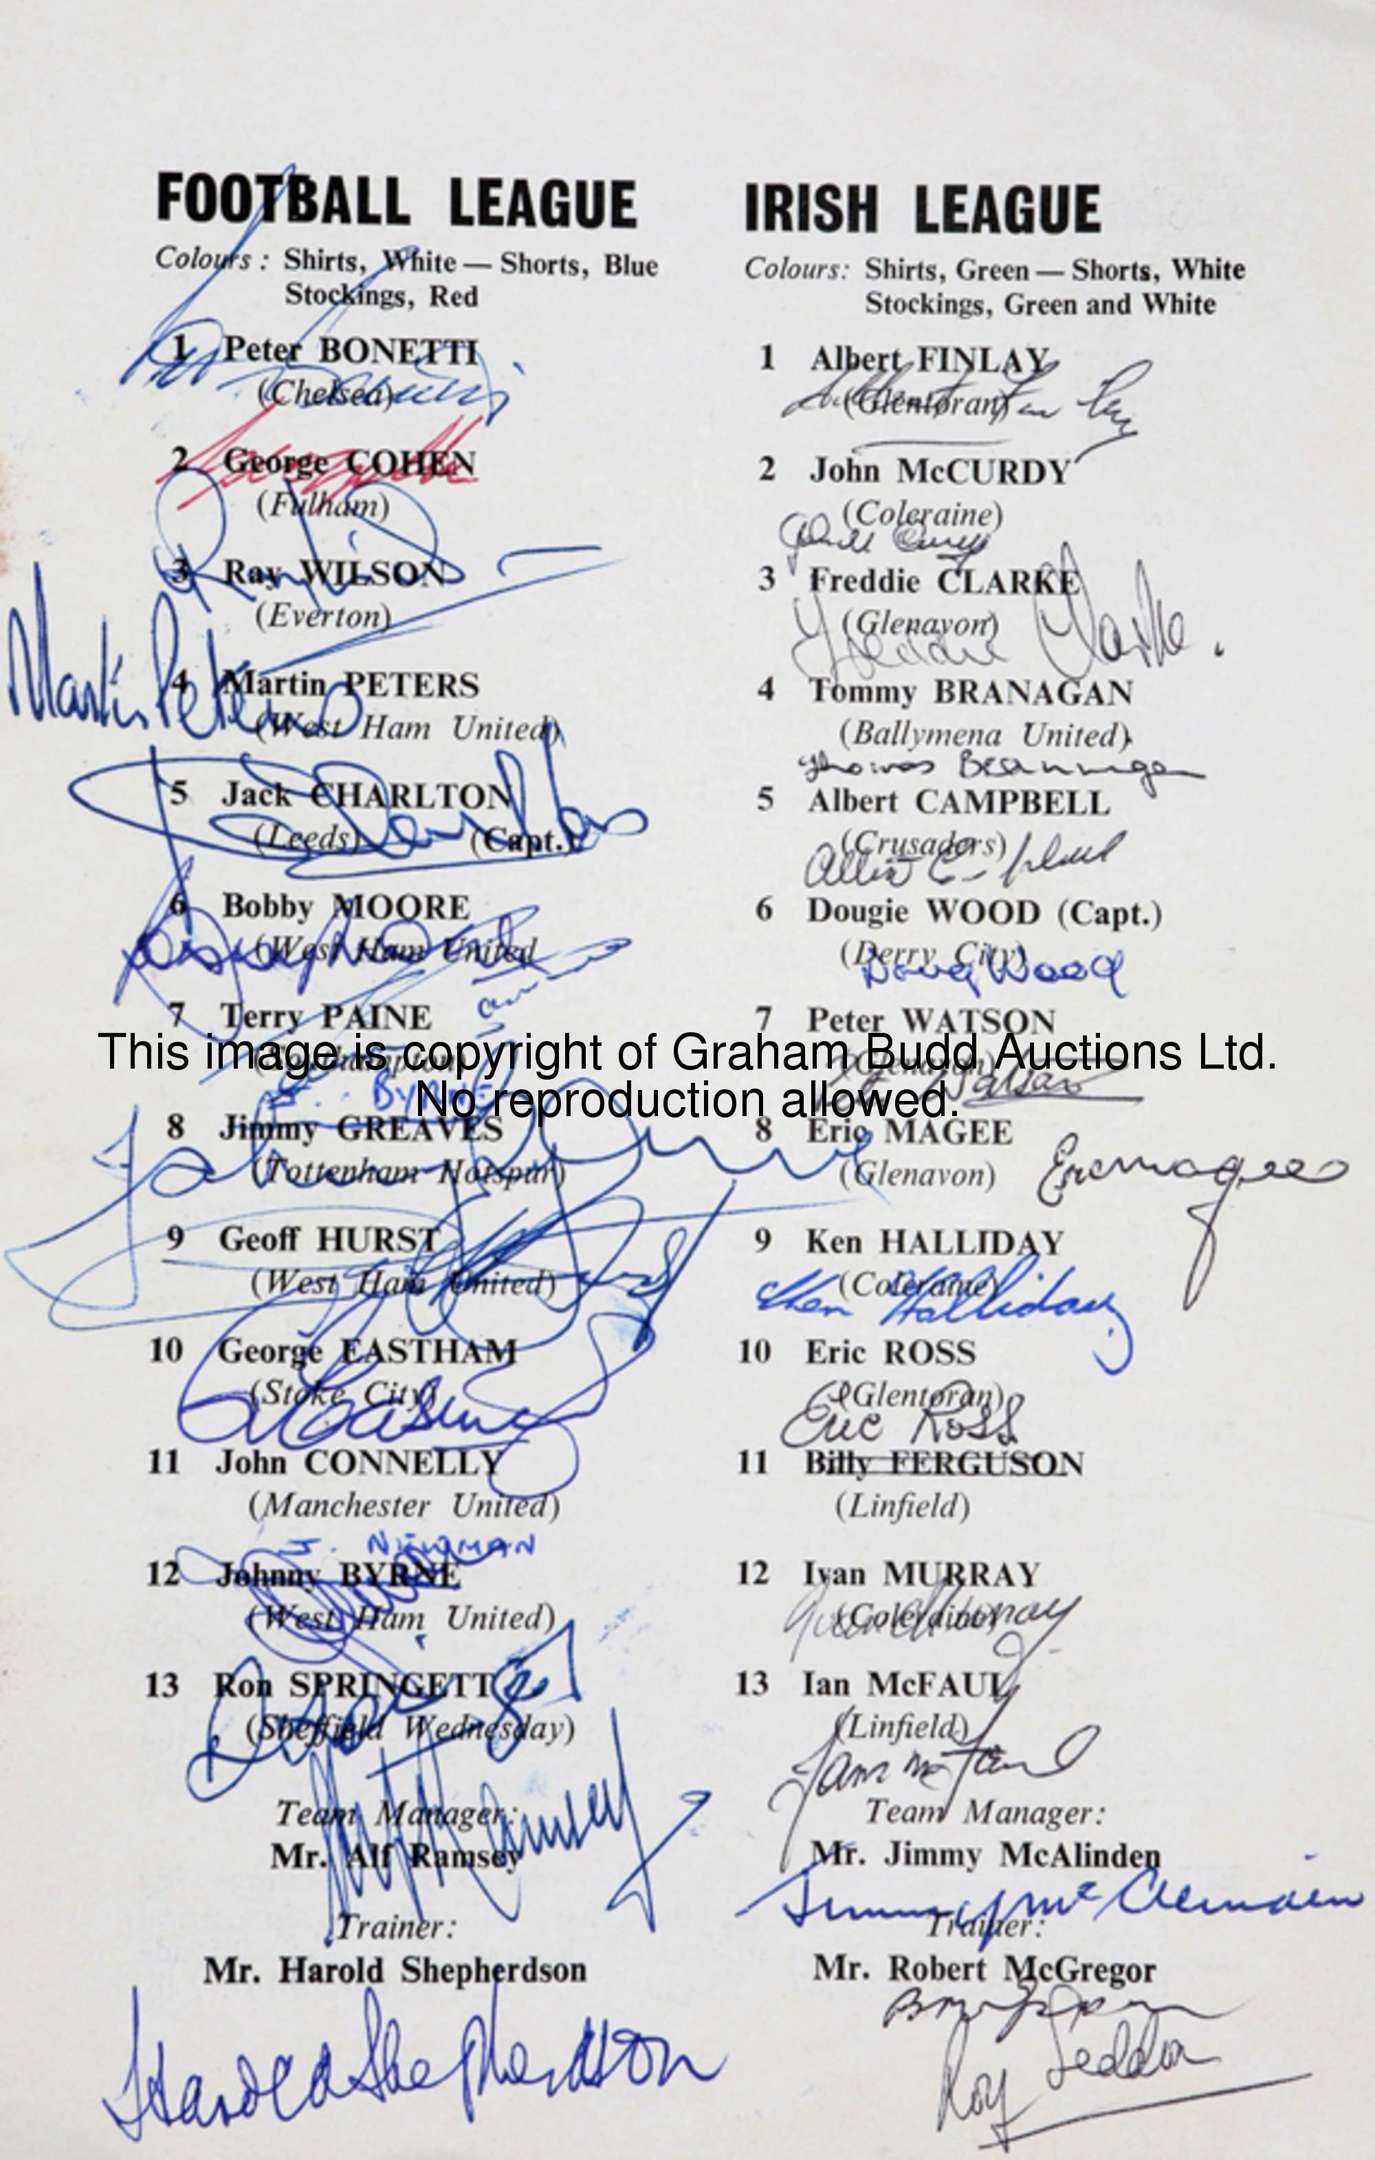 FOOTBALL LEAGUE
Colours: Shirts, White — Shorts, Blue
Stockings, Red
1 Peter BONETTI
(Chelsea)
2 George COHEN
(Fulham)
3 Ray WILSON
(Everton)
Martin Peters
4 Martin PETERS
(West Ham United)
5 Jack CHARLTON
(Leeds) (Capt.)
6 Bobby MOORE
(West Ham United
7 Terry PAINE
(Southampton)
BYRNE
8 Jimmy GREAVES
(Tottenham Hotspur)
9 Geoff HURST
(West Ham United)
10 George EASTHAM
(Stoke City)
11 John CONNELLY
(Manchester United)
J. NEWMAN
12 Johnny BYRNE
(West Ham United)
13 Ron SPRINGETT
(Sheffield Wednesday)
Team Manager:
Mr. Alf Ramsey
Alf Ramsey
Trainer:
Mr. Harold Shepherdson
Harold Shepherdson
IRISH LEAGUE
Colours: Shirts, Green — Shorts, White
Stockings, Green and White
1 Albert FINLAY
(Glentoran)
2 John McCURDY
(Coleraine)
3 Freddie CLARKE
(Glenavon)
Freddie Clarke.
4 Tommy BRANAGAN
(Ballymena United)
Thomas
5 Albert CAMPBELL
(Crusaders)
6 Dougie WOOD (Capt.)
(Derry City)
Doug Wood
7 Peter WATSON
(Glenavon)
Watson
8 Eric MAGEE
(Glenavon)
Eric Magee
9 Ken HALLIDAY
(Coleraine)
Ken Halliday
10 Eric ROSS
(Glentoran)
Eric Ross
11 Billy FERGUSON
(Linfield)
12 Ivan MURRAY
(Coleraine)
Ivan Murray
13 Ian McFAUL
(Linfield)
Team Manager:
Mr. Jimmy McAlinden
Jimmy
Trainer:
Mr. Robert McGregor
Roy Seddon
This image is copyright of Graham Budd Auctions Ltd.
No reproduction allowed.